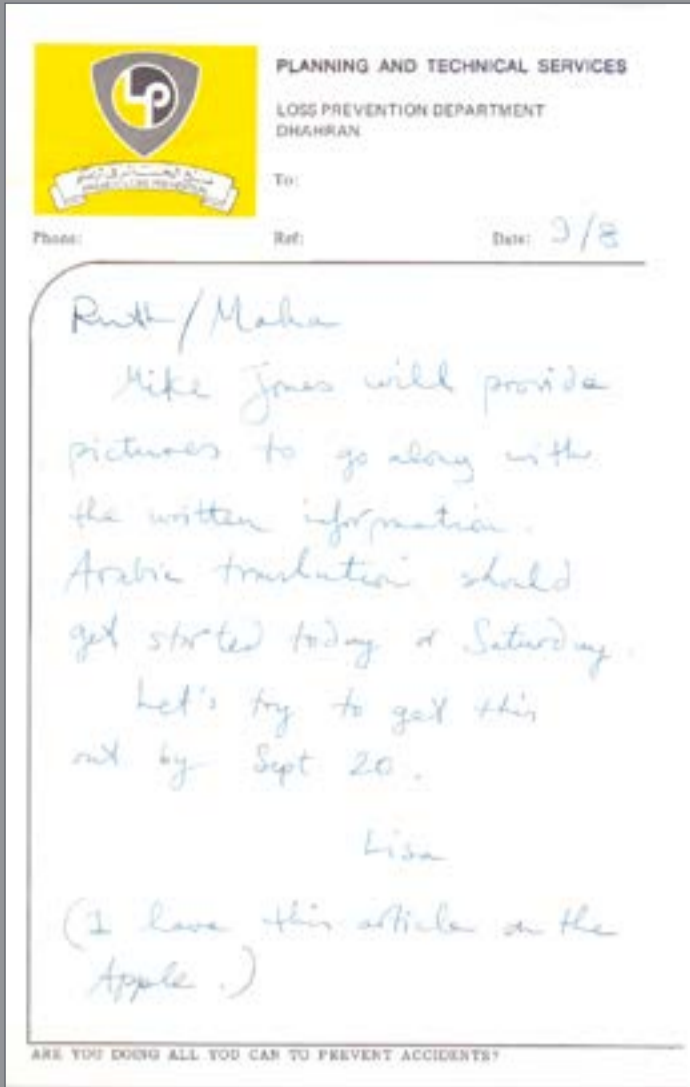 LP
PLANNING AND TECHNICAL SERVICES
LOSS PREVENTION DEPARTMENT
DHAHRAN
To:
Phone:
Ref:
Date: 9/8
Ruth/Maha
Mike Jones will provide
pictures to go along with
the written information.
Arabic translation should
get started today or Saturday.
Let's try to get this
out by Sept 20.
Lisa
(I have this article on the
Apple.)
ARE YOU DOING ALL YOU CAN TO PREVENT ACCIDENTS?